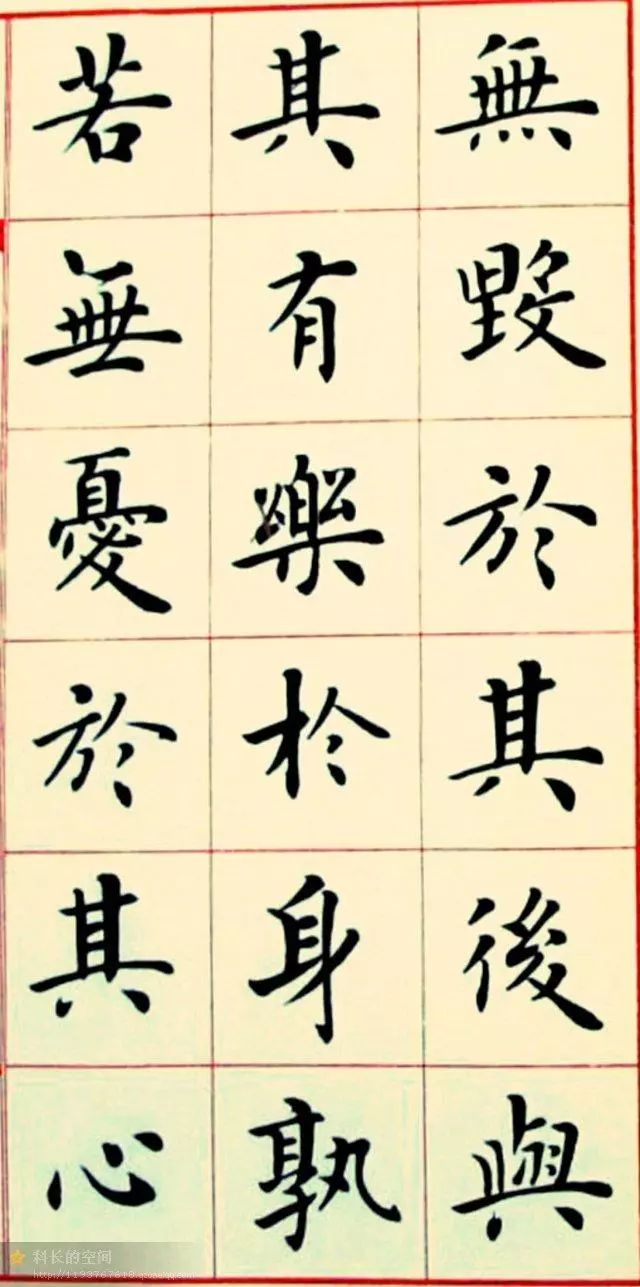 無毀於其後與
其有樂於身孰
若無憂於其心
科长的空间